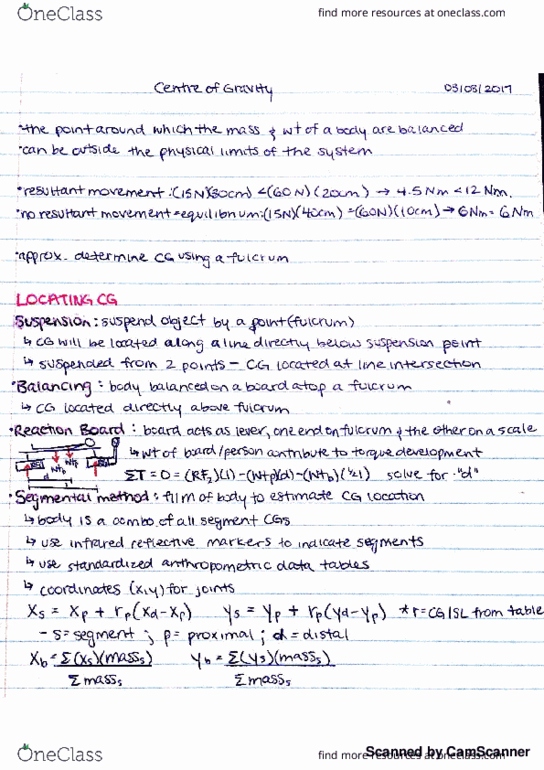 OneClass
find more resources at oneclass.com
Centre of Gravity 03/03/2017
•the point around which the mass & wt of a body are balanced
•can be outside the physical limits of the system
•resultant movement: (15N)(30cm) < (60N)(20cm) → 4.5Nm < 12 Nm.
•no resultant movement = equilibrium: (15N)(40cm) = (60N)(10cm) → 6Nm = 6Nm
•approx. determine CG using a fulcrum
LOCATING CG
Suspension: suspend object by a point (fulcrum)
↳ CG will be located along a line directly below suspension point
↳ suspended from 2 points - CG located at line intersection
•Balancing: body balanced on a board atop a fulcrum
↳ CG located directly above fulcrum
•Reaction Board: board acts as lever, one end on fulcrum & the other on a scale
↳ wt of board/person contribute to torque development
ΣT = 0 = (RF₂)(l) - (Wtp)(d) - (Wtb)(½l) solve for "d"
•Segmental method: film of body to estimate CG location
↳ body is a combo of all segment CGs
↳ use infrared reflective markers to indicate segments
↳ use standardized anthropometric data tables
↳ coordinates (x,y) for joints
Xs = Xp + rp(Xd-Xp) ys = yp + rp(yd-yp) *r=CG/SL from table
- s=segment ; p= proximal ; d = distal
Xb = Σ(Xs)(mass s) yb = Σ(ys)(mass s)
Σmass s Σmass s
OneClass
find more resources at oneclass.com
Scanned by CamScanner